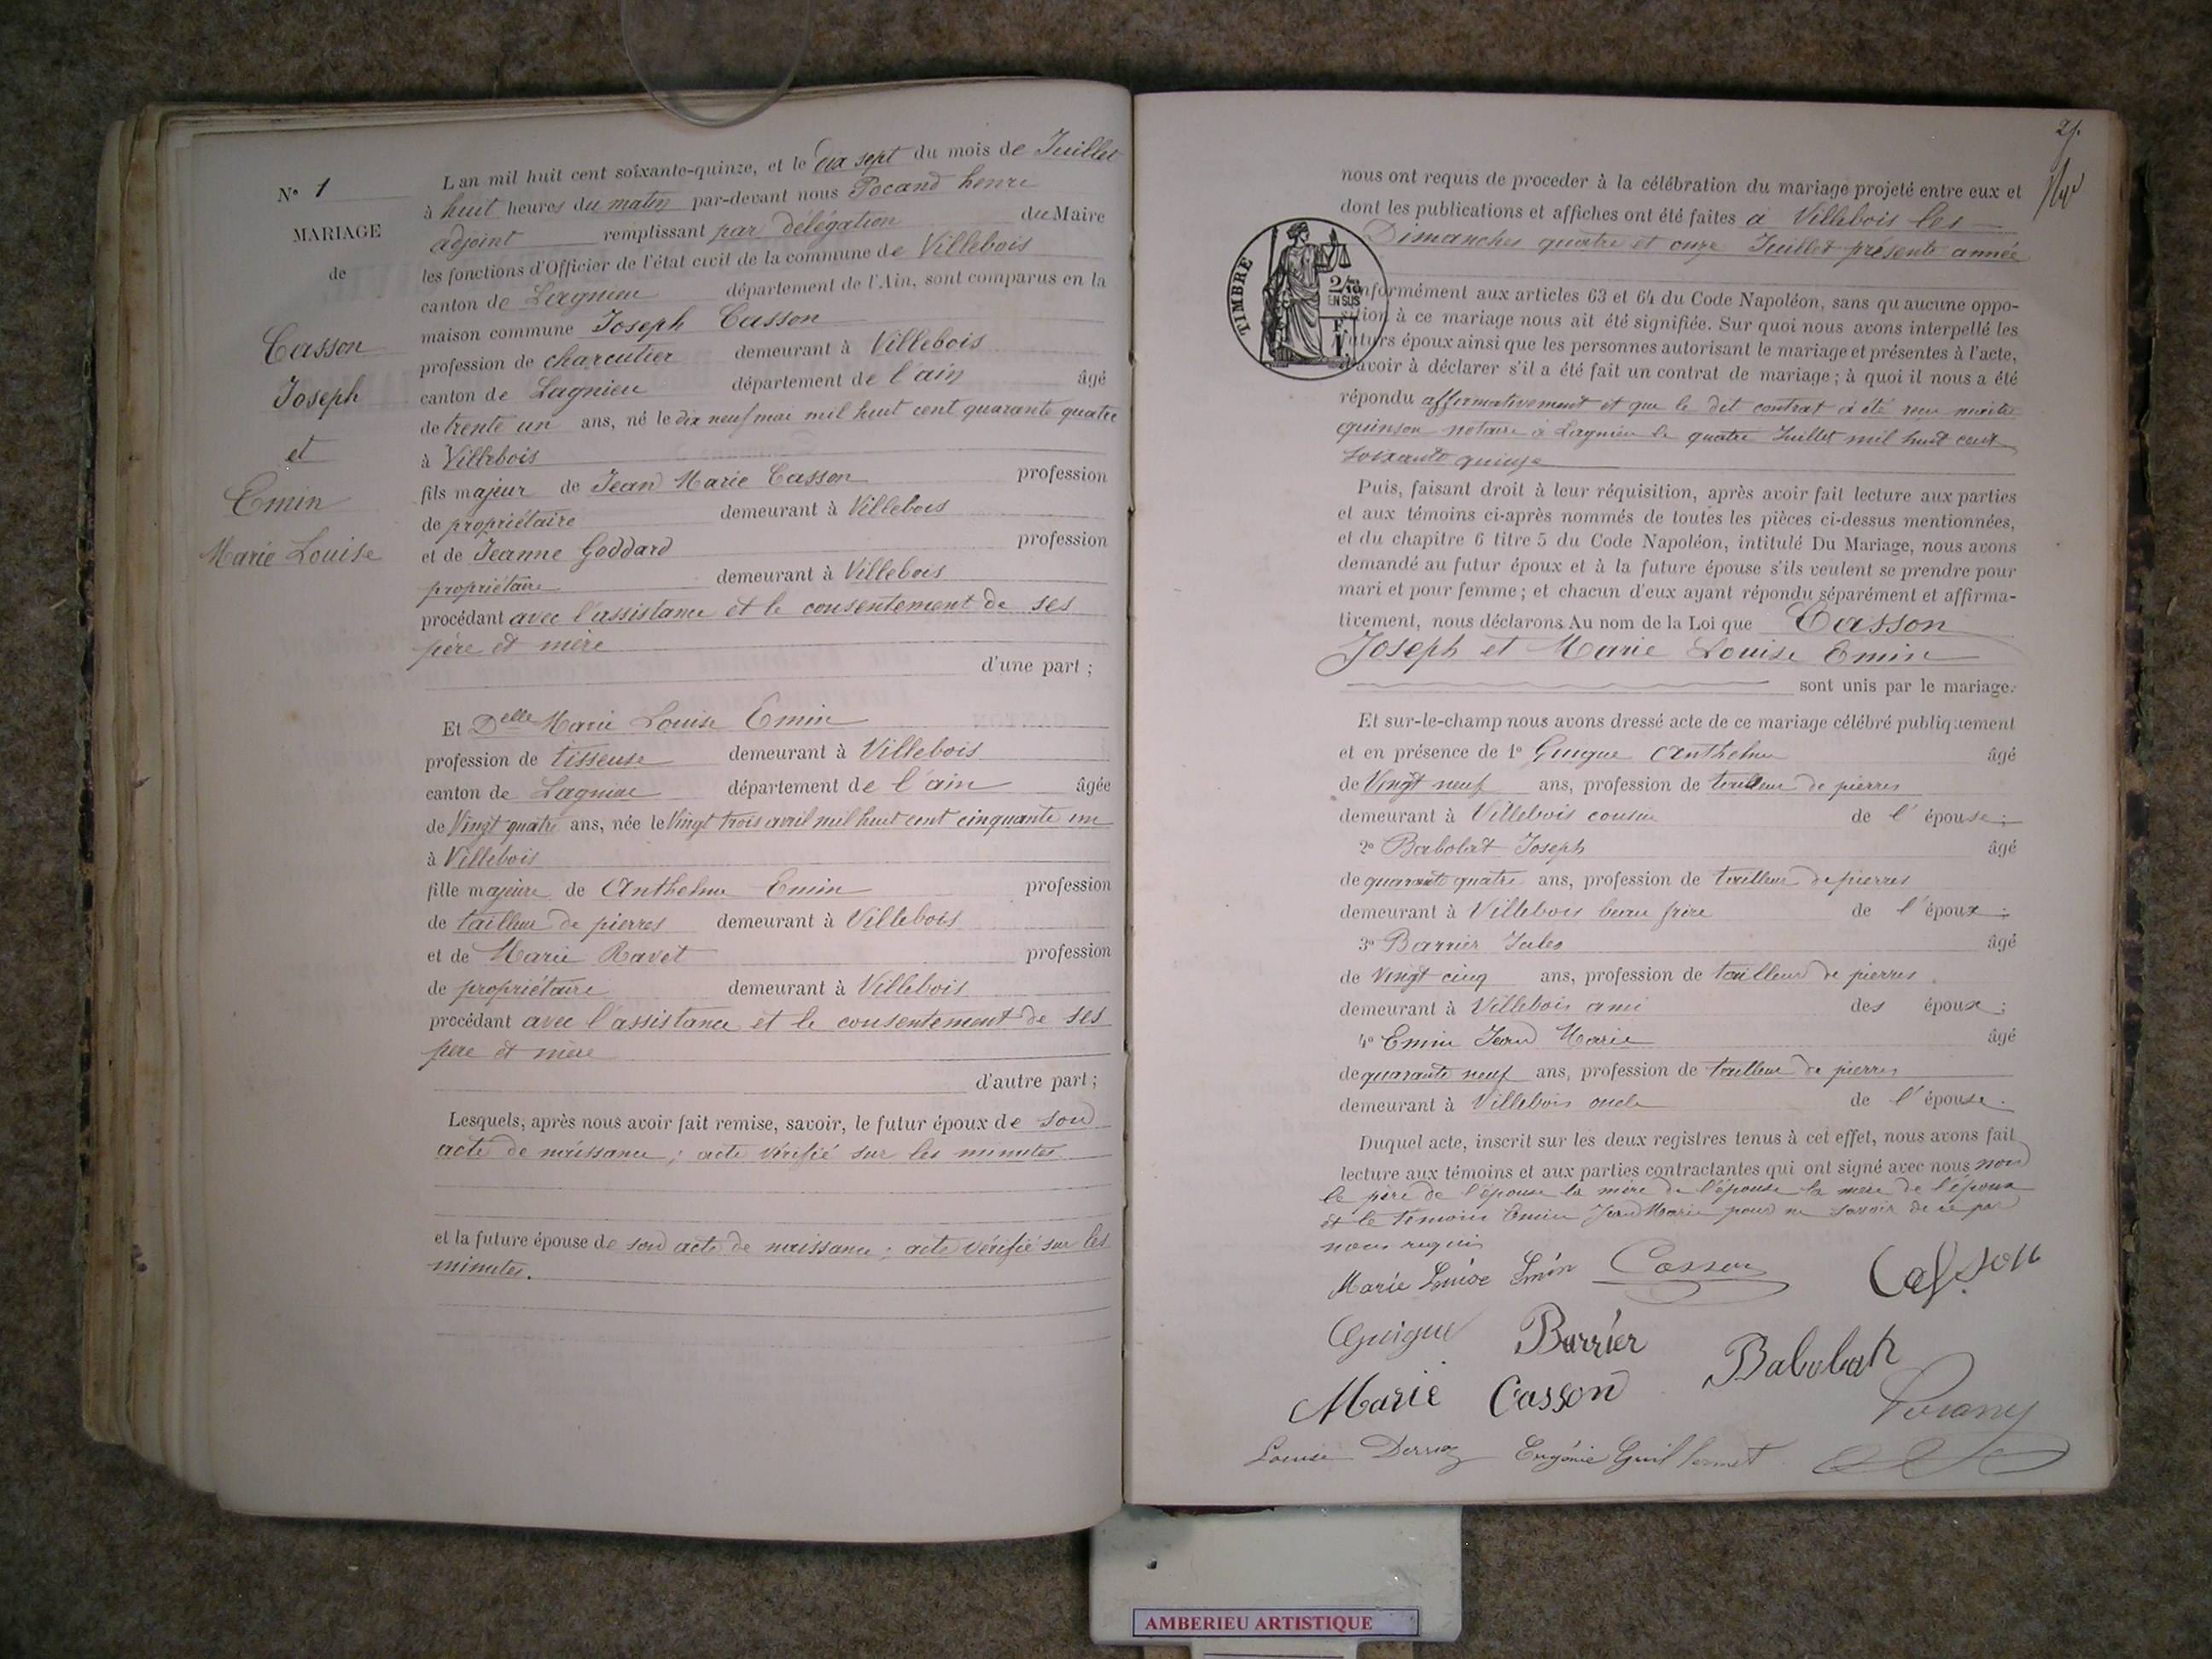 N° 1
MARIAGE
de
Casson
Joseph
et
Emin
Marie Louise
L'an mil huit cent soixante-quinze, et le dix sept du mois de Juillet
à huit heures du matin par-devant nous Pocand henri
adjoint remplissant par délégation du Maire
les fonctions d'Officier de l'état civil de la commune de Villebois
canton de Lagnieu département de l'Ain, sont comparus en la
maison commune Joseph Casson
profession de charcutier demeurant à Villebois
canton de Lagnieu département de l'ain âgé
de trente un ans, né le dix neuf mai mil huit cent quarante quatre
à Villebois
fils majeur de Jean Marie Casson profession
de propriétaire demeurant à Villebois
et de Jeanne Goddard profession
propriétaire demeurant à Villebois
procédant avec l'assistance et le consentement de ses
père et mère
d'une part ;
Et Delle Marie Louise Emin
profession de tisseuse demeurant à Villebois
canton de Lagnieu département de l'ain âgée
de Vingt quatre ans, née le Vingt trois avril mil huit cent cinquante un
à Villebois
fille majeure de Anthelme Emin profession
de tailleur de pierres demeurant à Villebois
et de Marie Ravet profession
de propriétaire demeurant à Villebois
procédant avec l'assistance et le consentement de ses
père et mère
d'autre part ;
Lesquels, après nous avoir fait remise, savoir, le futur époux de son
acte de naissance ; acte vérifié sur les minutes
et la future épouse de son acte de naissance ; acte vérifié sur les
minutes.
nous ont requis de proceder à la célébration du mariage projeté entre eux et
dont les publications et affiches ont été faites à Villebois les
Dimanches quatre et onze Juillet présente année
TIMBRE
2/10
EN SUS
conformément aux articles 63 et 64 du Code Napoléon, sans qu'aucune oppo-
sition à ce mariage nous ait été signifiée. Sur quoi nous avons interpellé les
futurs époux ainsi que les personnes autorisant le mariage et présentes à l'acte,
d'avoir à déclarer s'il a été fait un contrat de mariage ; à quoi il nous a été
répondu affirmativement et que le dit contrat a été reçu maitre
quinson notaire à Lagnieu le quatre Juillet mil huit cent
soixante quinze
Puis, faisant droit à leur réquisition, après avoir fait lecture aux parties
et aux témoins ci-après nommés de toutes les pièces ci-dessus mentionnées,
et du chapitre 6 titre 5 du Code Napoléon, intitulé Du Mariage, nous avons
demandé au futur époux et à la future épouse s'ils veulent se prendre pour
mari et pour femme ; et chacun d'eux ayant répondu séparément et affirma-
tivement, nous déclarons Au nom de la Loi que Casson
Joseph et Marie Louise Emin
sont unis par le mariage.
Et sur-le-champ nous avons dressé acte de ce mariage célébré publiquement
et en présence de 1° Guigue Anthelme âgé
de Vingt neuf ans, profession de tailleur de pierres
demeurant à Villebois cousin de l'épouse ;
2° Babolat Joseph âgé
de quarante quatre ans, profession de tailleur de pierres
demeurant à Villebois beau frère de l'époux ;
3° Barrier Jules âgé
de Vingt cinq ans, profession de tailleur de pierres
demeurant à Villebois ami des époux ;
4° Emin Jean Marie âgé
de quarante neuf ans, profession de tailleur de pierres
demeurant à Villebois oncle de l'épouse.
Duquel acte, inscrit sur les deux registres tenus à cet effet, nous avons fait
lecture aux témoins et aux parties contractantes qui ont signé avec nous non
le père de l'épouse la mère de l'épouse la mère de l'époux
et le témoin Emin Jean Marie pour ne savoir de ce par
nous requis
Marie Louise Emin Casson Casson
Guigue Barrier Babolat
Marie Casson
Louise Eugénie Guillermet
AMBERIEU ARTISTIQUE